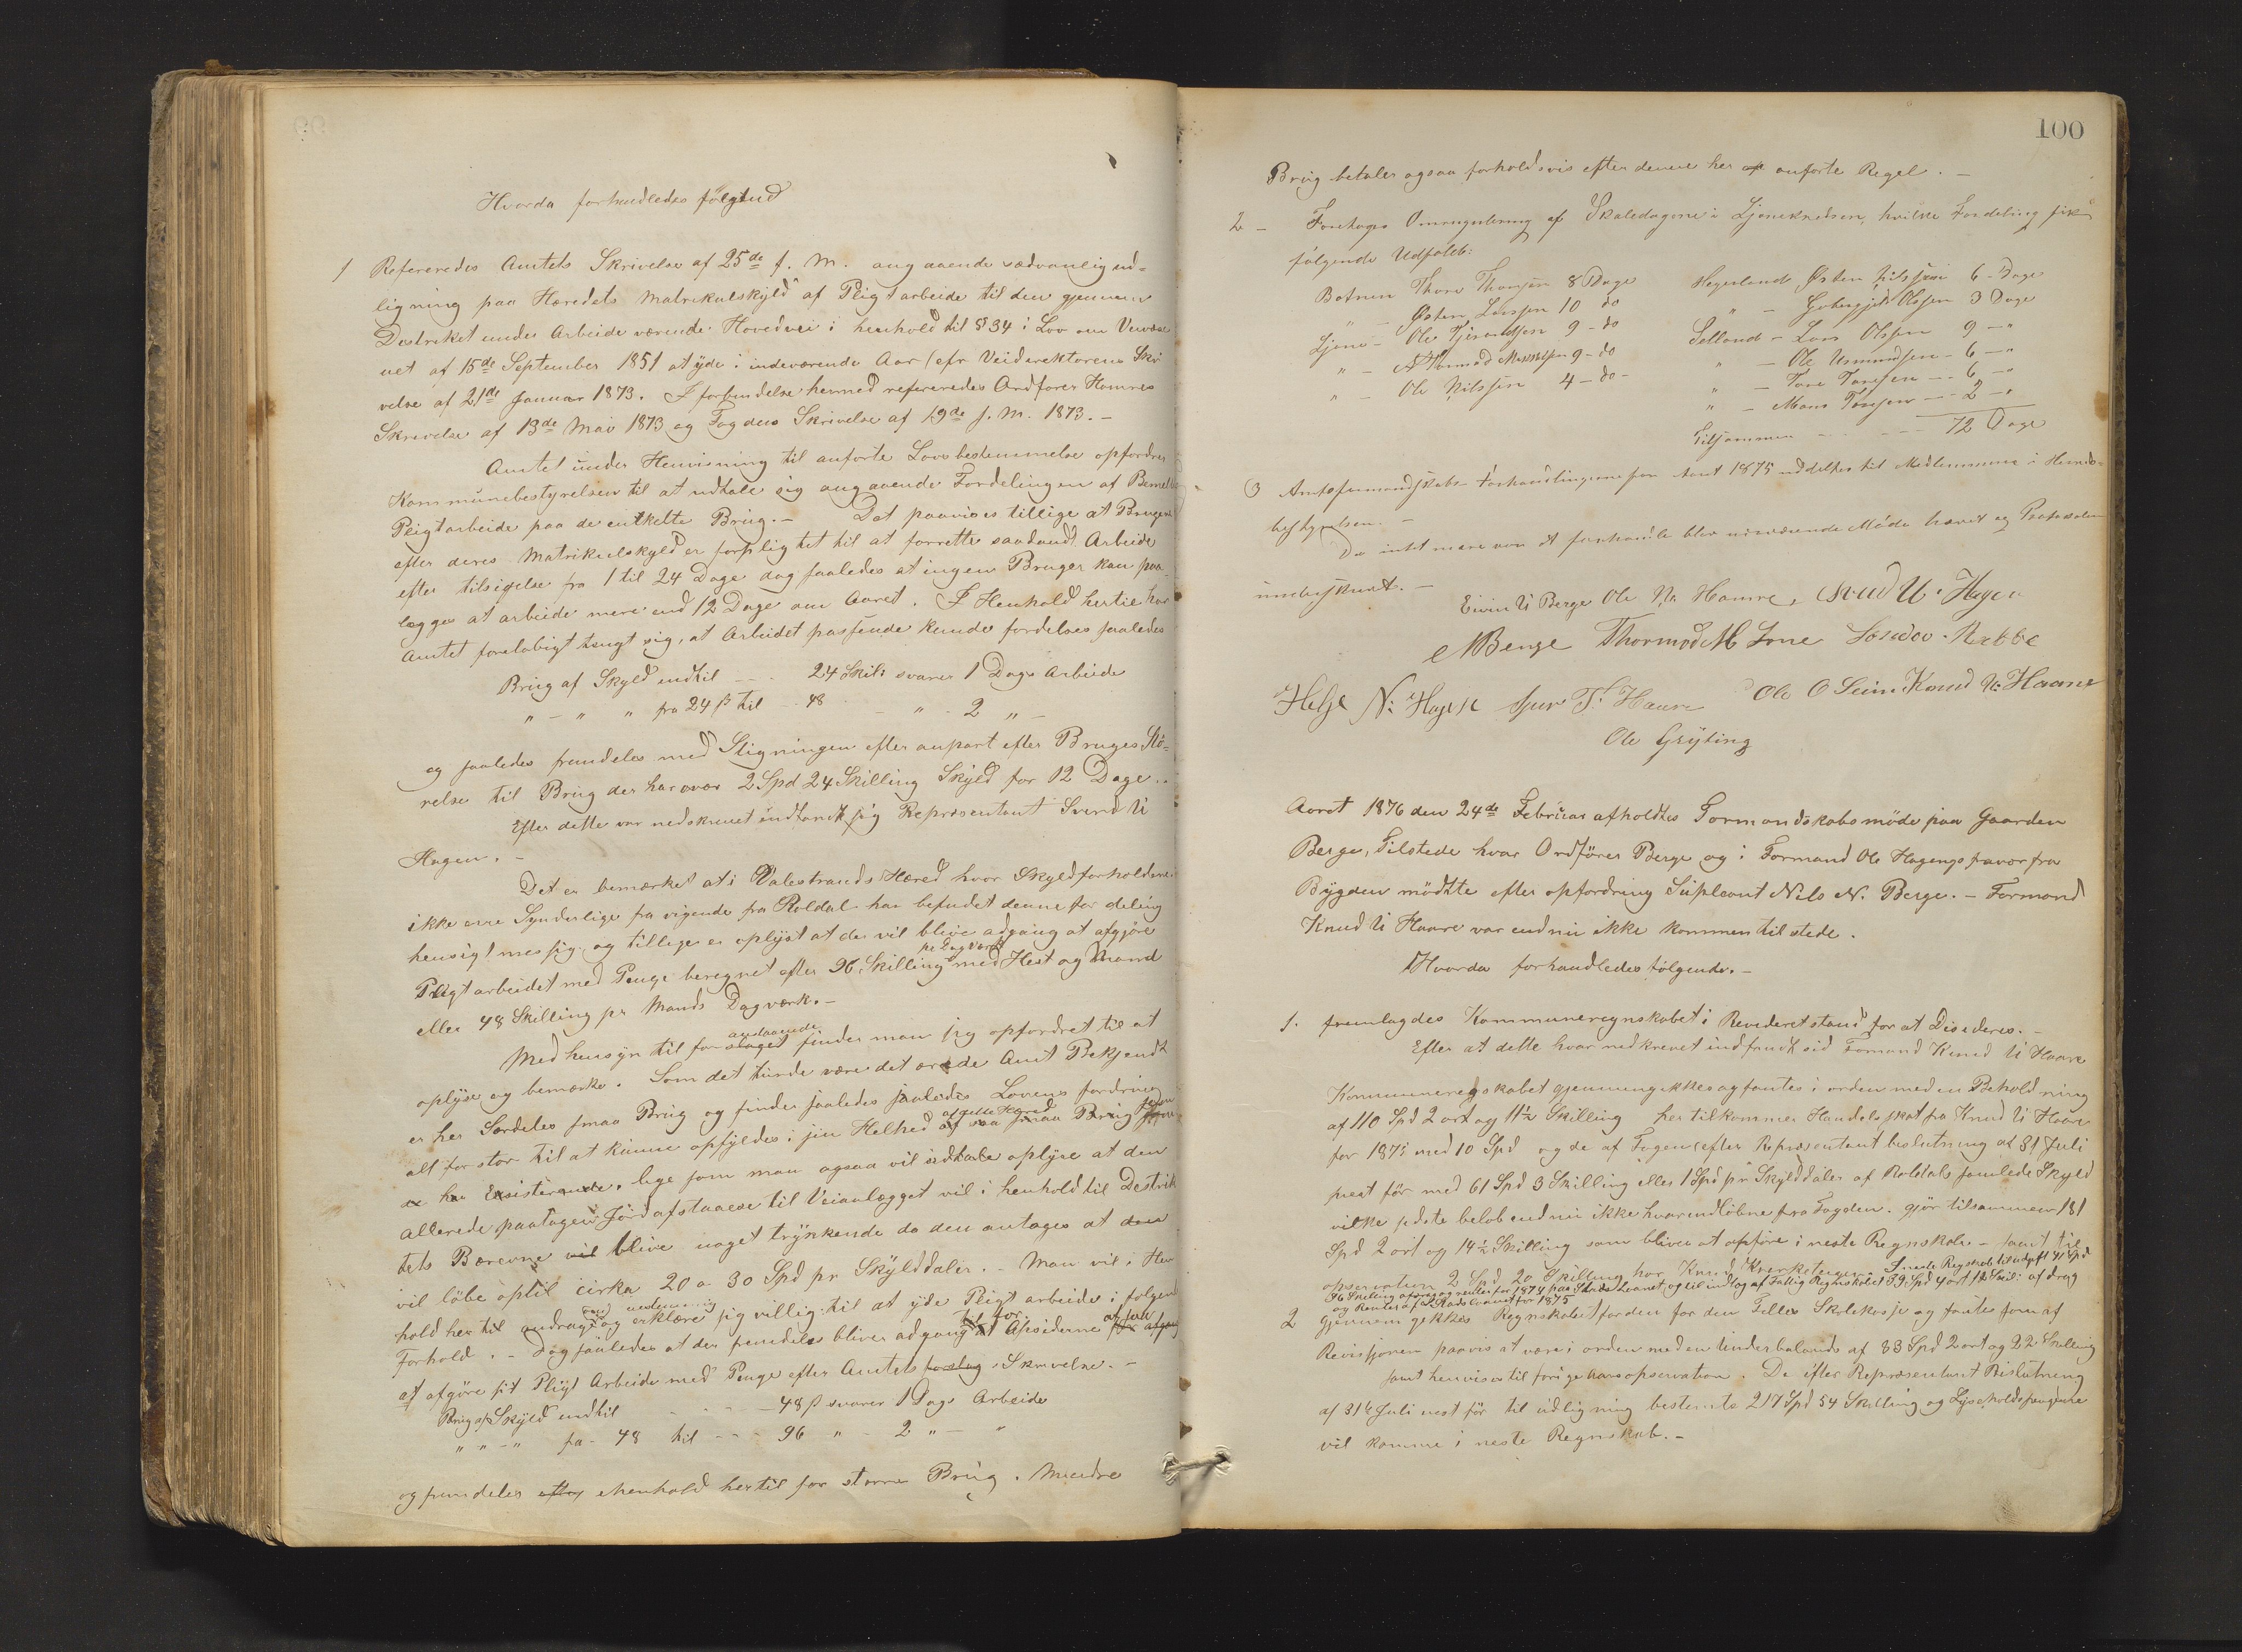 Hvorda forhandledes følgend
1 Refereredes Amtets Skrivelse af 25de f. M. angaaende sædvanlig ud=
ligning paa Hæredets Matrikulskyld af Pligtarbeide til den gjennem
Destriktet under Arbeide værende Hovedvei i henhold til § 34 i Lov om Veivæse
net af 15de September 1851 at yde i indeværende Aar (cfr Veidirektørens Skri
velse af 21de Januar 1873. I forbindelse hermed refereredes Ordfører Hamres
Skrivelse af 13de Mai 1873 og Fogdens Skrivelse af 19de f. M. 1873. -
Amtet under Henvisning til anførte Lovbestemmelse opfordrer
Kommunebestyrelsen til at udtale sig angaaende Fordelingen af
Pligtarbeide paa de entkelte Brug. - Det paavises tillige at Brugere
efter deres Matrikulskyld er forpligtet til at forrette saadandt Arbeide
efter tilsigelse fra 1 til 24 Dage dog saaledes at ingen Bruger kan paa
lægges at arbeide mere end 12 Dage om Aaret. I Henhold hertil har
Amtet foreløbigt tengt sig, at Arbeidet passende kunde fordeles saaledes
Brug af Skyld indtil - - - 24 Skil: svarer 1 Dags Arbeide
" - " " fra 24 ß til - - 48 - " - 2 " -
og saaledes fremdeles med Stigningen efter anpart efter Bruges Stø=
relse til Brug der har over 2 Spd 24 Skilling Skyld for 12 Dage. -
Efter dette var nedskrevet indfandt sig Representant Svend U
Hagen. -
Det er bemærket at i Valestrands Hæred hvor Skyldforholdene
ikke erre Synderlige fra vigende fra Røldal har befundet denne for deling
hensigtmessig og tillige er oplyst at der vil blive adgang at afgjøre
pr Dagværk
Pligtarbeidet med Penge beregnet efter 96 Skilling med Hest og Mand
eller 48 Skilling pr Mands Dagværk. -
anstaaende
Med hensyn til for slaget finder man sig opfordret til at
oplyse og bemærke. Som det turde være det ærede Amt Bekjendt
er her Særdeles smaa Brug og findes saaledes saaledes Lovens fordring
af dette Hæred
alt for stor til at kunne opfyldes i sin Helhed af saa smaa Brug som
de her Exsisterende. lige som man ogsaa vil udtale oplyse at den
allerede paatagen Jordafstaaese til Veianlægget vil i henhold til Destrik
tets Bæreevne vil blive noget trykkende da den antages at den
vil løbe optil cirka 20 a 30 Spd pr Skylddaler. - Man vil i Hen
hold her til andrage og erklære sig villig til at yde Pligtarbeide i følgend
Forhold. - Dog saaledes at der fremdeles bliver adgang for Opsiderne
at afgøre sit Pligt Arbeide med Penge efter Amtets forslag i Skrivelse. -
Brug af Skyld indtil - - - - 48 ß svarer 1 Dags Arbeide
" " - " fra - 48 til - - - 96 " - 2 " - "
og fremdeles efter ihenhold hertil for større Brug. Mindre
100
Brug betaler ogsaa forholdsvis efter denne her af anførte Regel. -
2 - Foretages Omregulering af Skoledagene i Ljonekredsen, hvilke Fordeling fik
følgende Udfald:
Botnen Thore Thorsen 8 Dage
" - Østen Larsen 10 do
Ljone - Ole Tjerandsen 9 - do
" - Tormod Monssen 9 - do
" - Ole Nilssen 4 - do -
Hegerland Østen Nilssen 6 - Dage
" - Gutorm Olssen 3 Dage
Selland - Lars Olssen 9 - "
" - Ole Asmundsen - 6 - "
" - Tore Toresen - - 6 - "
" - Mons Toresen - - 2 - "
Tilsammen - - - - - 72 Dage
3 Amtsformandskabs Forhandlingerne for Aaret 1875 uddeltes til Medlemmerne i Hereds=
bestyrelsen. -
Da intet mere var at forhandle blev nerværende Møde hævet og Protocolen
underskrevet. -
Eivin U Berge Ole N. Hamre, Svend U. Hagen
N Berge Thormod M Lone Rabbe
Helje N: Hagen Sjur T. Haare Ole O Seim Knud U: Haare
Ole Gryting
Aaret 1876 den 24de Februar afholdtes Formandskabsmøde paa Gaarden
Berge, Tilstede hvar Ordfører Berge og i Formand Ole Hagens fravær fra
Bygden mødtte efter opfordring Supleant Nils N. Berge. - Formand
Knud U Haare var endnu ikke kommen tilstede.
Hvorda forhandledes følgende. -
1. fremlagdes Kommuneregnskabet i Revederet stand for at Disideres. -
Efter at dette hvar nedkrevet indfandt sid Formand Knud U Haare
Kommuneregskabet gjennemgikkes og fantes i orden med en Beholdning
af 110 Spd 2 ort og 11½ Skilling her tilkommer Handelsskat fra Knud U Haare
for 1875 med 10 Spd og de af Fogen (efter Representent beslutning af 31 Juli
nest før med 61 Spd 3 Skilling eller 1 Spd pr Skylddaler af Roldals samlede Skyld
vilke sidste beløb endnu ikke hvar indløbne fra Fogden. gjør tilsammen 181
Spd 2 ort og 14½ Skilling som bliver at opføre i neste Regnskab. - samt til
opservation 2 Spd 20 Skilling har Knud Kverketeigen. I neste Regskab til udgift 41 Spd
96 Skiling afdrag og renter for 1874 paa Skads Leanet og til indtæg af Fattig Regnskabet 39 Spd 4 ort 12 Skil: afdrag
og Renter af Skadslaanet for 1875
2 Gjennem gekkes Regnskabet forden for den Felles Skolekasse og fantes som af
Revisjonen paavis at være i orden med en Underbalands af 83 Spd 2 ort og 22 Skilling
samt henviser til forige Aars opservation. De efter Representant Beslutning
af 31te Juli nest før til udligning bestemte 217 Spd 54 Skilling og Lysholdspengene
vil komme i neste Regnskab. -